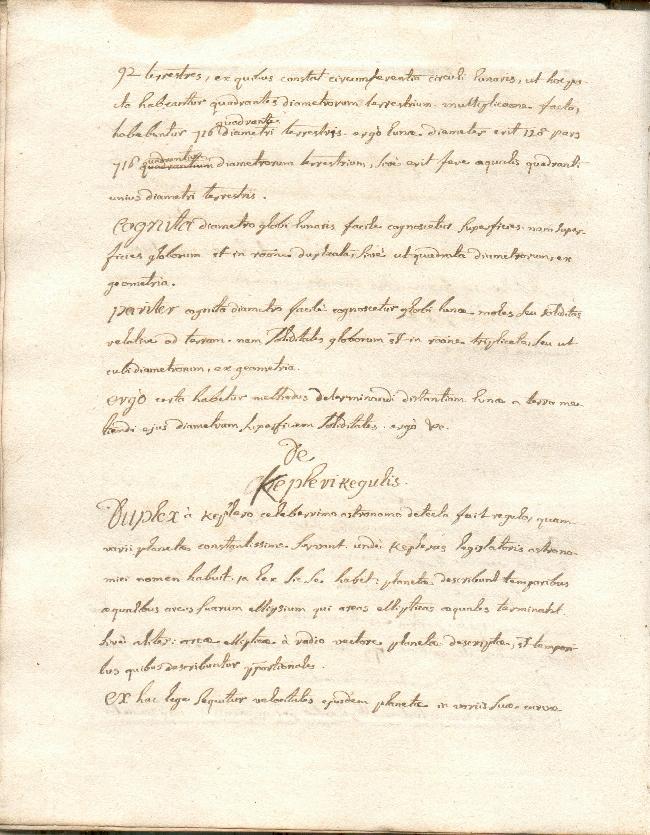 92 terrestres, ex quibus constat circumferentia circuli lunaris, ut hoc pa-
cto habeantur quadrantes diametrorum terrestrium. multiplicaone facta,
quadrante
habebuntur 716 diametri terrestris. ergo lunæ diameter erit 128 pars
quadrantum
716 diametrorum terrestrium, sive erit fere æqualis quadranti
unius diametri terrestris.
Cognita diametro globi lunaris facile cognoscetur superficies. nam super-
ficies globorum st in raone duplicata, sive ut quadrata diametrorum, ex
geometria.
pariter cognita diametro facile cognoscetur globi lunæ moles seu soliditas
relative ad terram. nam soliditates globorum st in raone triplicata, seu ut
cubi diametrorum, ex geometria.
ergo certa habetur methodus determinandi distantiam lunæ a terra me-
tiendi ejus diametrum superficiem soliditates. ergo &c.
De
Kepleri Regulis.
Duplex à Keplero celeberrimo astronomo detecta fuit regula, quam
varii planetæ constantissime servant. unde Keplerus legislatoris astrono-
mici nomen habuit. 1a lex sic se habet: planetæ describunt temporibus
æqualibus arcus suarum ellipsium qui areas ellipticas æquales terminabt.
sive aliter: areæ ellipticæ à radio vectore planetæ descriptæ, st tempori-
bus quibus describuntur pportionales.
ex hac lege sequitur velocitates ejusdem planetæ in variis suæ curvæ